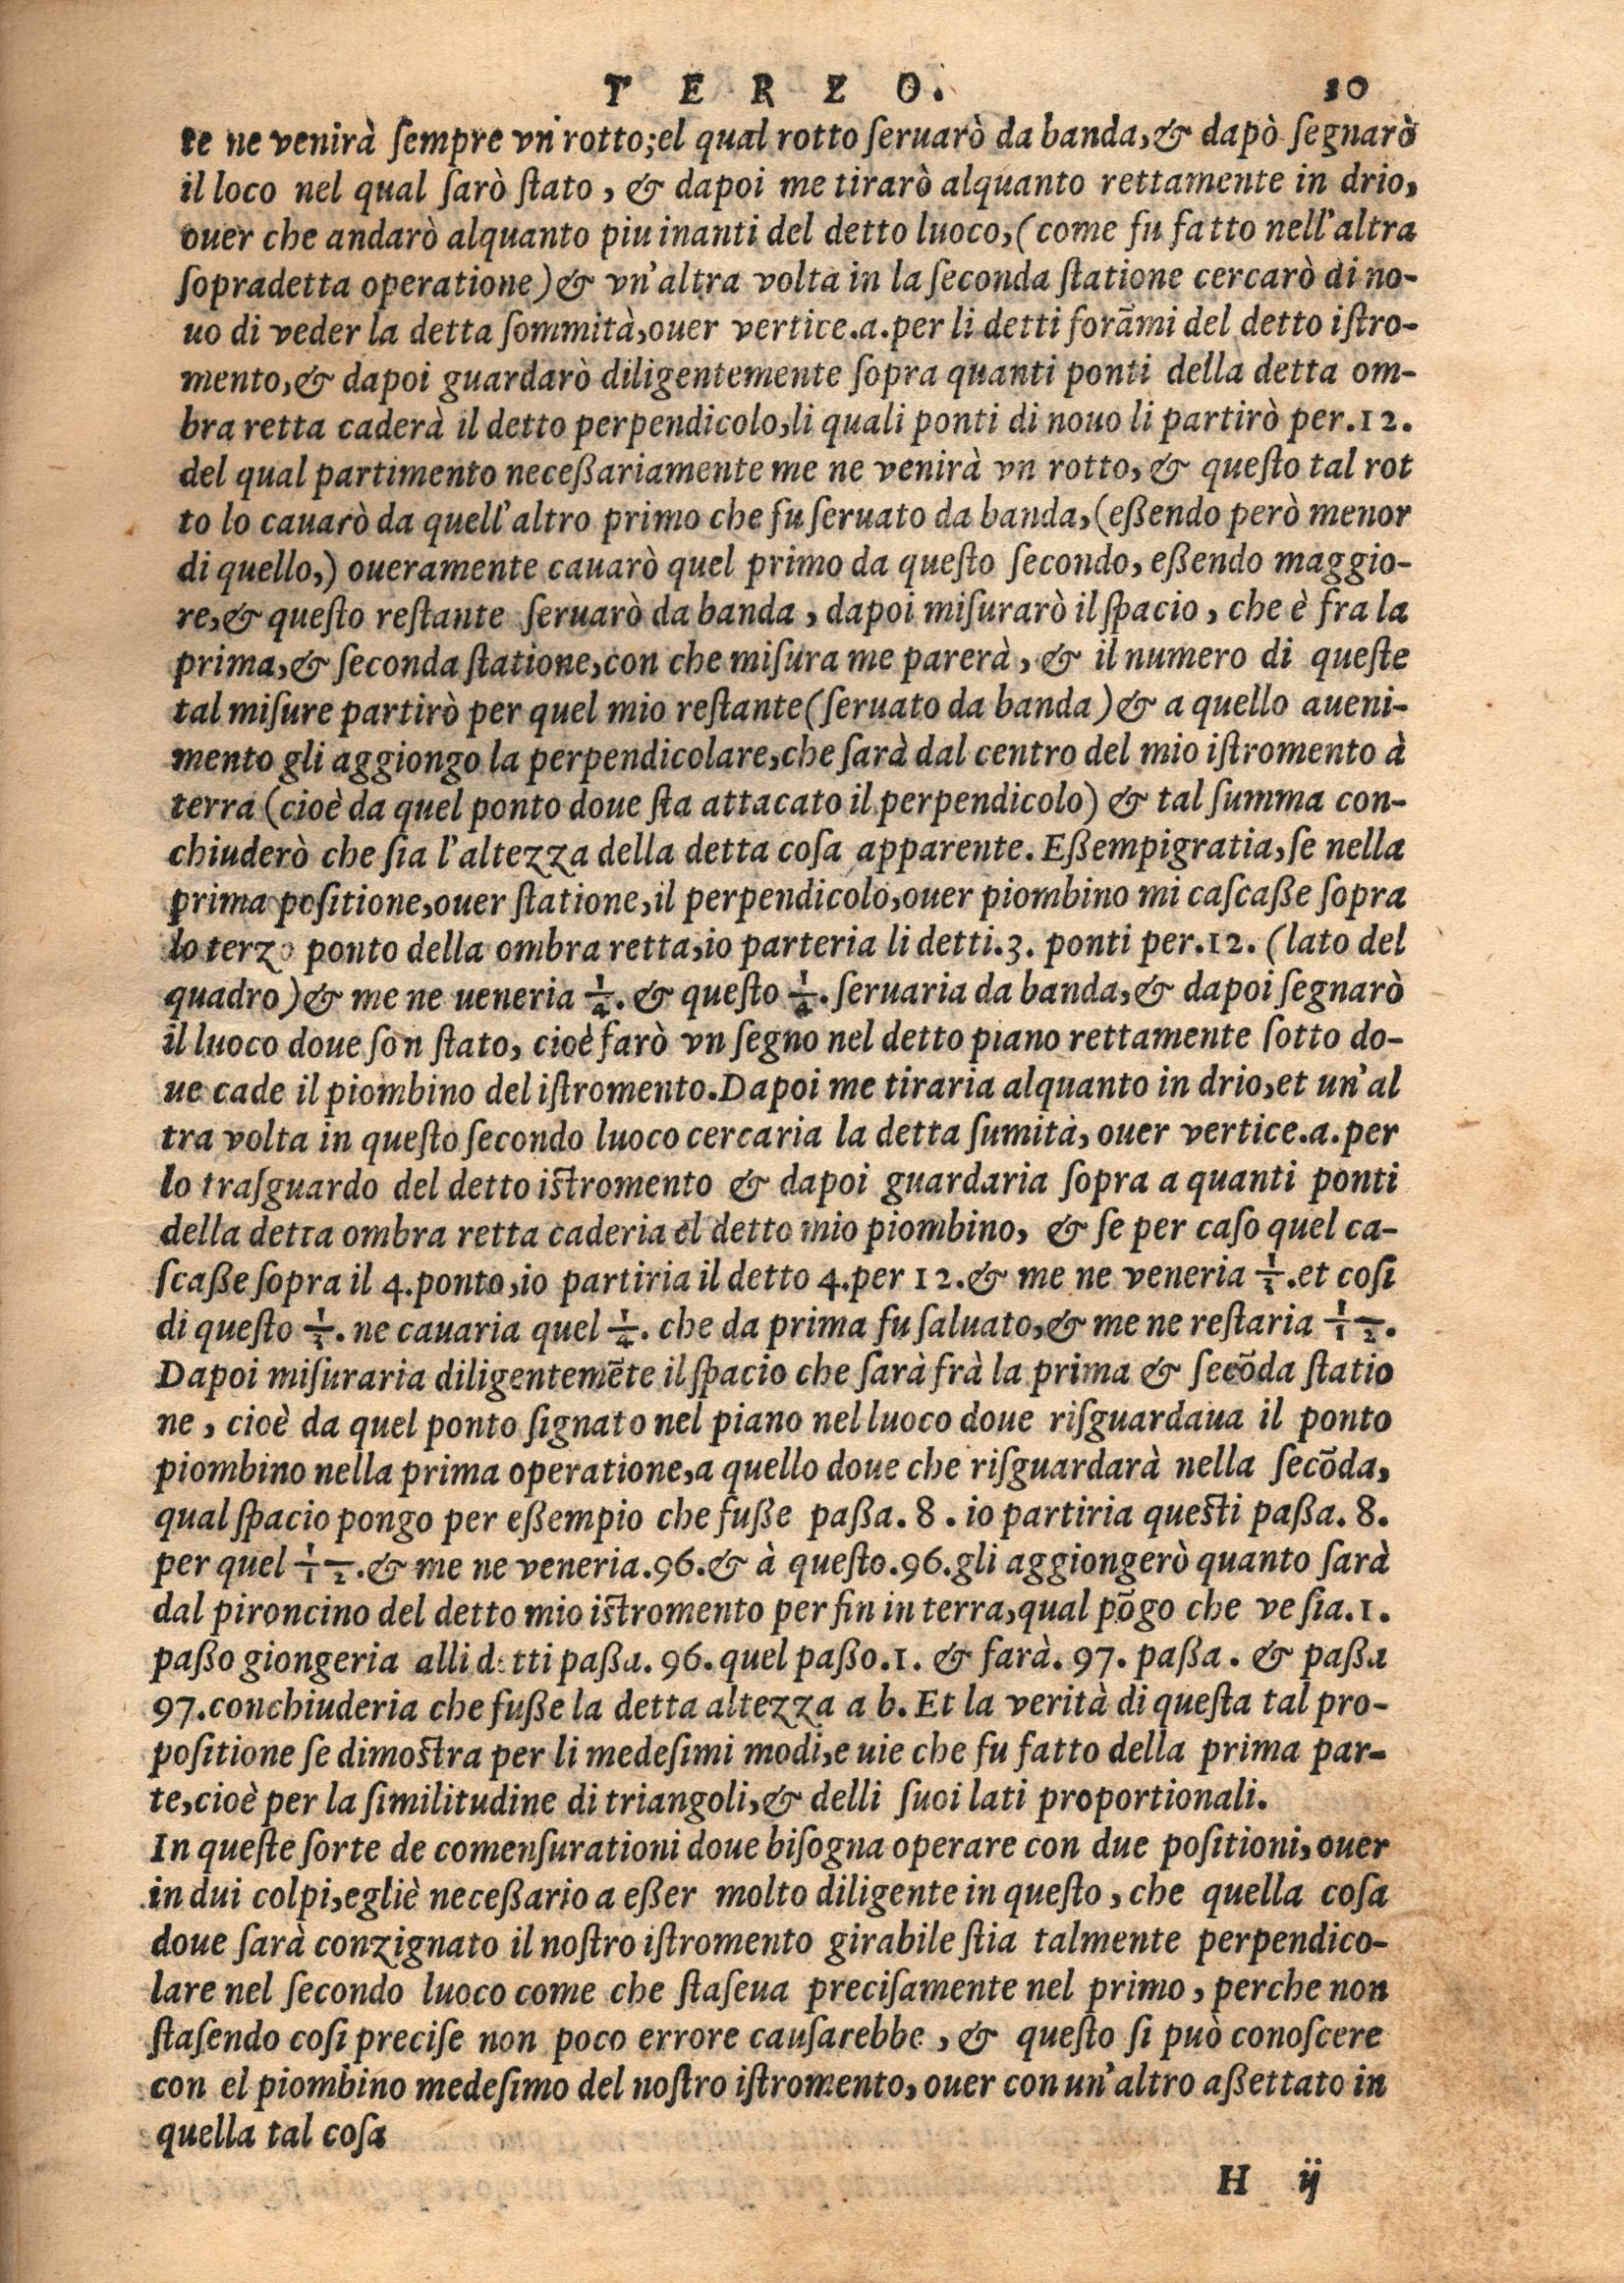 TERZO. 30
te ne venirà ſempre vn' rotto; el qual rotto ſeruarò da banda, & dapò ſegnarò
il loco nel qual ſarò ſtato, & dapoi me tirarò alquanto rettamente in drio,
ouer che andarò alquanto piu inanti del detto luoco, (come fu fatto nell'altra
ſopradetta operatione) & vn'altra volta in la ſeconda ſtatione cercarò di no-
uo di veder la detta ſommità, ouer vertice.a.per li detti forāmi del detto iſtro-
mento, & dapoi guardarò diligentemente ſopra quanti ponti della detta om-
bra retta caderà il detto perpendicolo, li quali ponti di nouo li partirò per.12.
del qual partimento neceßariamente me ne venirà vn rotto, & queſto tal rot
to lo cauarò da quell'altro primo che fu ſeruato da banda, (eßendo però menor
di quello,) oueramente cauarò quel primo da queſto ſecondo, eßendo maggio-
re, & queſto reſtante ſeruarò da banda, dapoi miſurarò il ſpacio, che è fra la
prima, & ſeconda ſtatione, con che miſura me parerà, & il numero di queſte
tal miſure partirò per quel mio reſtante (ſeruato da banda) & a quello aueni-
mento gli aggiongo la perpendicolare, che ſarà dal centro del mio iſtromento à
terra (cioè da quel ponto doue ſta attacato il perpendicolo) & tal ſumma con-
chiuderò che ſia l'altezza della detta coſa apparente. Eßempigratia, ſe nella
prima poſitione, ouer ſtatione, il perpendicolo, ouer piombino mi caſcaße ſopra
lo terzo ponto della ombra retta, io parteria li detti.3. ponti per.12. (lato del
quadro) & me ne ueneria 1/4. & queſto 1/4. ſeruaria da banda, & dapoi ſegnarò
il luoco doue ſon ſtato, cioè farò vn ſegno nel detto piano rettamente ſotto do-
ue cade il piombino del iſtromento. Dapoi me tiraria alquanto in drio, et un'al
tra volta in queſto ſecondo luoco cercaria la detta ſumità, ouer vertice.a.per
lo traſguardo del detto iſtromento & dapoi guardaria ſopra a quanti ponti
della detta ombra retta caderia el detto mio piombino, & ſe per caſo quel ca-
ſcaße ſopra il 4.ponto, io partiria il detto 4.per 12.& me ne veneria 1/3.et coſi
di queſto 1/3. ne cauaria quel 1/4. che da prima fu ſaluato, & me ne reſtaria 1/12.
Dapoi miſuraria diligentemēte il ſpacio che ſarà frà la prima & ſecōda ſtatio
ne, cioè da quel ponto ſignato nel piano nel luoco doue riſguardaua il ponto
piombino nella prima operatione, a quello doue che riſguardarà nella ſecōda,
qual ſpacio pongo per eßempio che fuße paßa. 8. io partiria queſti paßa. 8.
per quel 1/12.& me ne veneria.96.& à queſto.96.gli aggiongerò quanto ſarà
dal pironcino del detto mio iſtromento per fin in terra, qual pōgo che ve ſia.1.
paßo giongeria alli detti paßa. 96. quel paßo.1. & farà. 97. paßa. & paßa
97.conchiuderia che fuße la detta altezza a b. Et la verità di queſta tal pro-
poſitione ſe dimoſtra per li medeſimi modi, e uie che fu fatto della prima par-
te, cioè per la ſimilitudine di triangoli, & delli ſuoi lati proportionali.
In queſte ſorte de comenſurationi doue biſogna operare con due poſitioni, ouer
in dui colpi, egliè neceßario a eßer molto diligente in queſto, che quella coſa
doue ſarà conzignato il noſtro iſtromento girabile ſtia talmente perpendico-
lare nel ſecondo luoco come che ſtaſeua preciſamente nel primo, perche non
ſtaſendo coſi preciſe non poco errore cauſarebbe, & queſto ſi può conoſcere
con el piombino medeſimo del noſtro iſtromento, ouer con un'altro aßettato in
quella tal coſa
H ij